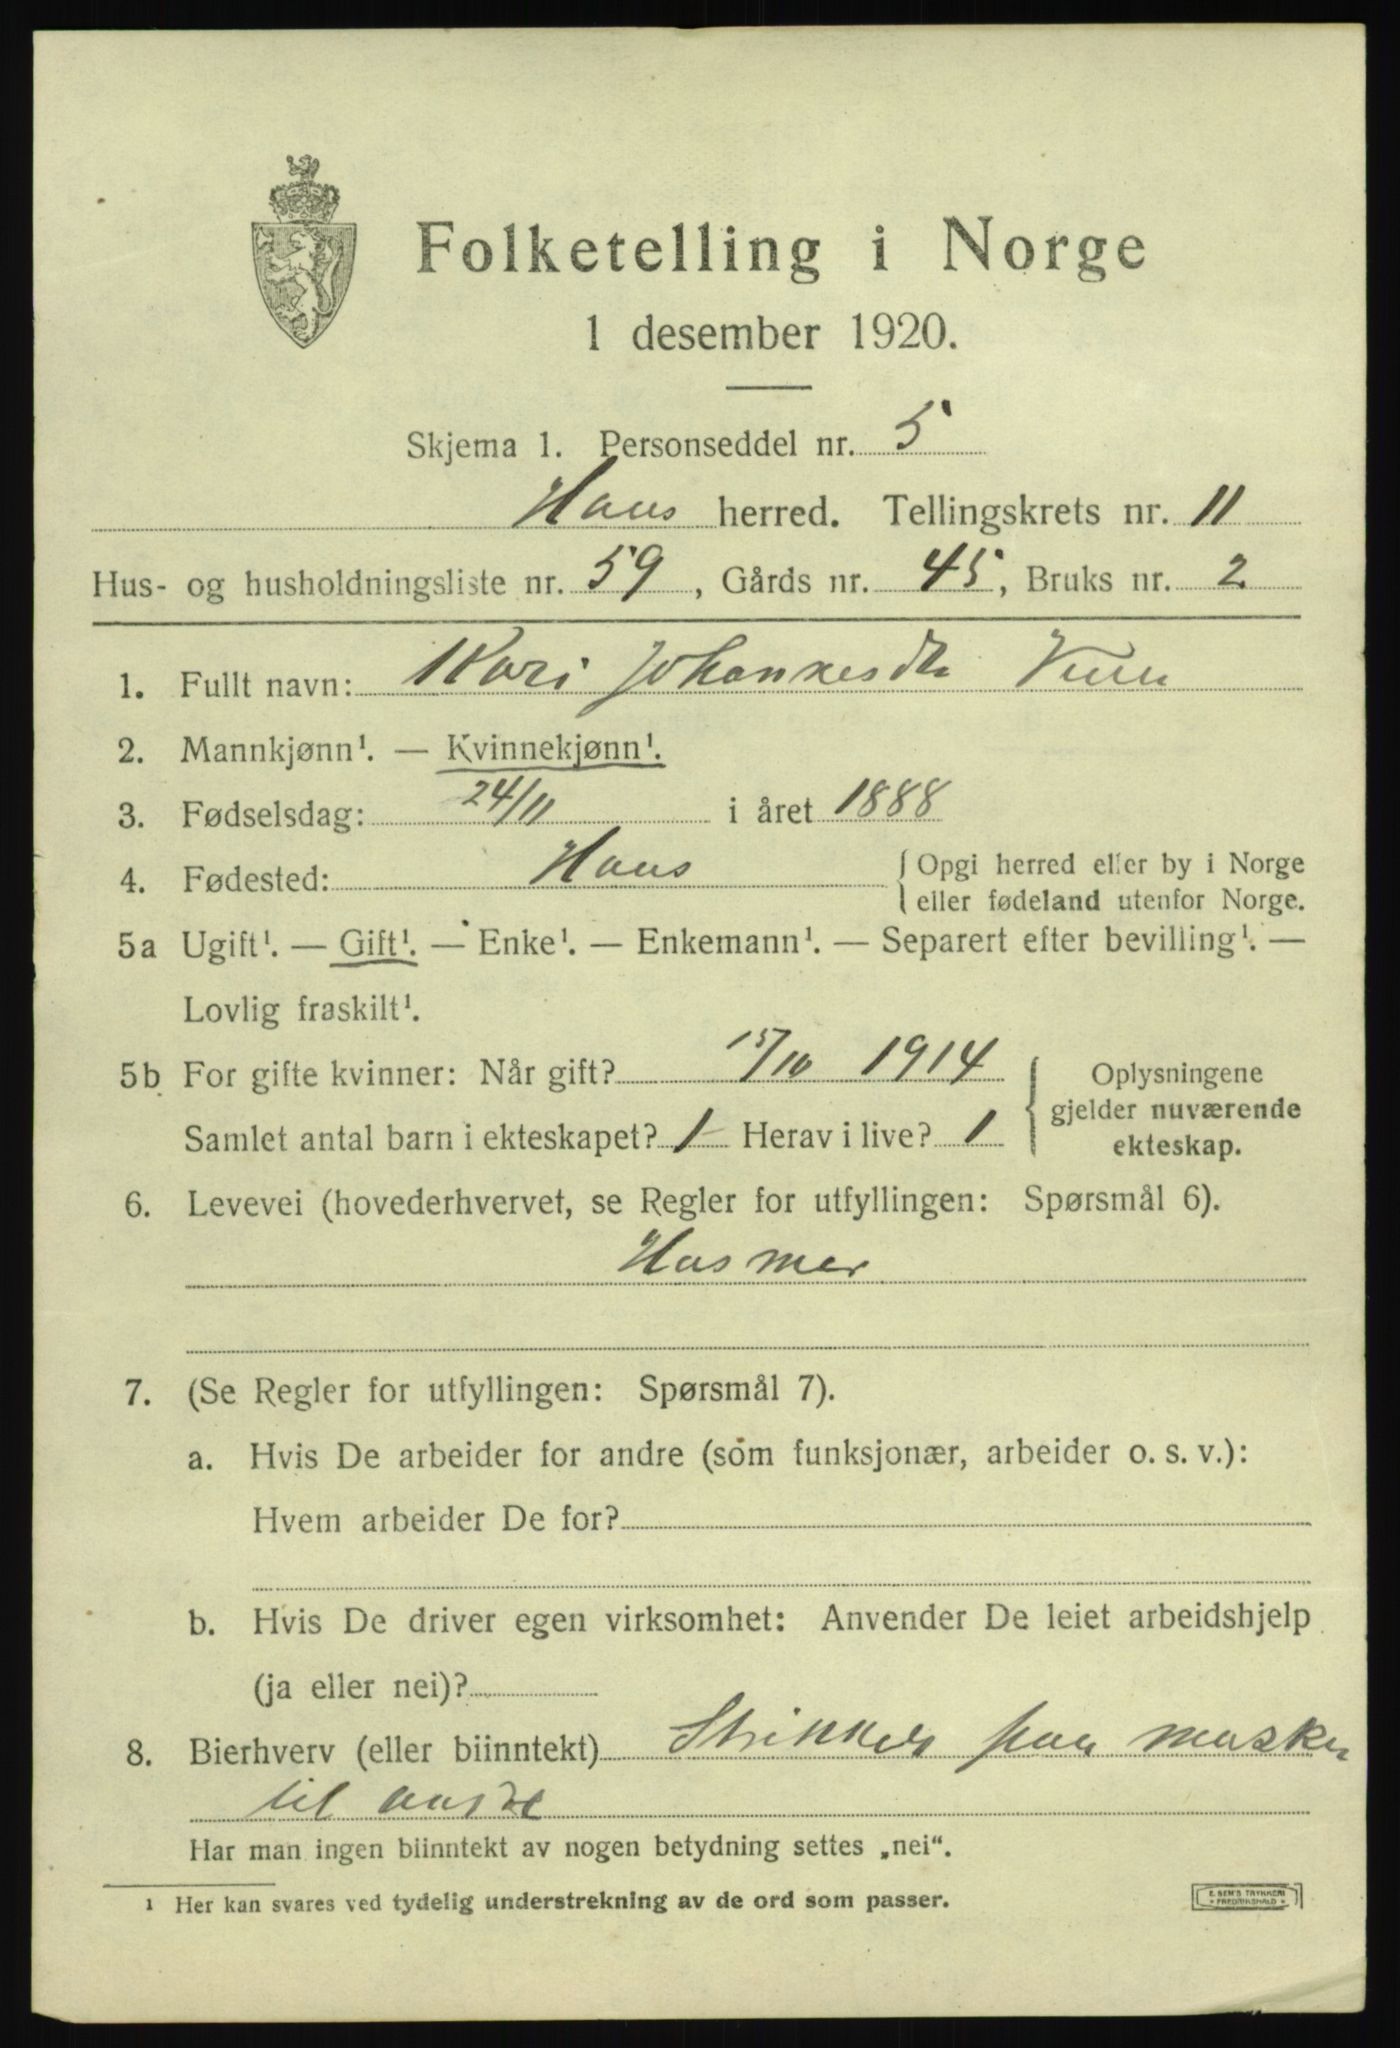 Folketelling i Norge
1 desember 1920.
Skjema 1. Personseddel nr. 5
Haus herred. Tellingskrets nr. 11
Hus- og husholdningsliste nr. 59, Gårds nr. 45, Bruks nr. 2
1. Fullt navn: Kari Johannesdtr
2. Mannkjønn¹. — Kvinnekjønn¹.
3. Fødselsdag: 24/11 i året 1888
4. Fødested: Haus { Opgi herred eller by i Norge
eller fødeland utenfor Norge.
5a Ugift¹. — Gift¹. — Enke¹. — Enkemann¹. — Separert efter bevilling¹. —
Lovlig fraskilt¹.
5b For gifte kvinner: Når gift? 15/10 1914
Samlet antal barn i ekteskapet? 1 Herav i live? 1
Oplysningene
gjelder nuværende
ekteskap.
6. Levevei (hovederhvervet, se Regler for utfyllingen: Spørsmål 6).
Husmor
7. (Se Regler for utfyllingen: Spørsmål 7).
a. Hvis De arbeider for andre (som funksjonær, arbeider o. s. v.):
Hvem arbeider De for?
b. Hvis De driver egen virksomhet: Anvender De leiet arbeidshjelp
(ja eller nei)?
8. Bierhverv (eller biinntekt) Strikker paa
til andre
Har man ingen biinntekt av nogen betydning settes „nei“.
¹ Her kan svares ved tydelig understrekning av de ord som passer.
E. SEM'S TRYKKERI
FREDRIKSHALD